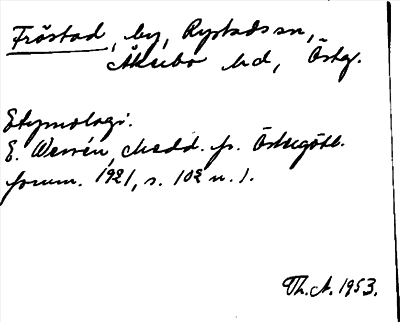 Fröstad, by, Rystads sn,
Åkerbo hd, Östg.
Etymologi.
E. Wessén, Medd. fr. Östergötl.
fornm. 1921, s. 102 n. 1.
Th. A. 1953.